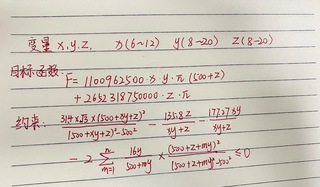 变量 x,y,z. x(6~12) y(8~20) z(8~20)
目标函数: F=1100962500 x y·π(500+z)
+2652318750000·z·π
约束: 314×√3×(500+xy+z)²/((500+xy+z)²-500²) - 1351.8z/(xy+z) - 177.27xy/(xy+z)
-2 ∑_{m=1}^{n} 16y/(500+my) × (500+z+my)²/((500+z+my)²-500²) ≤0